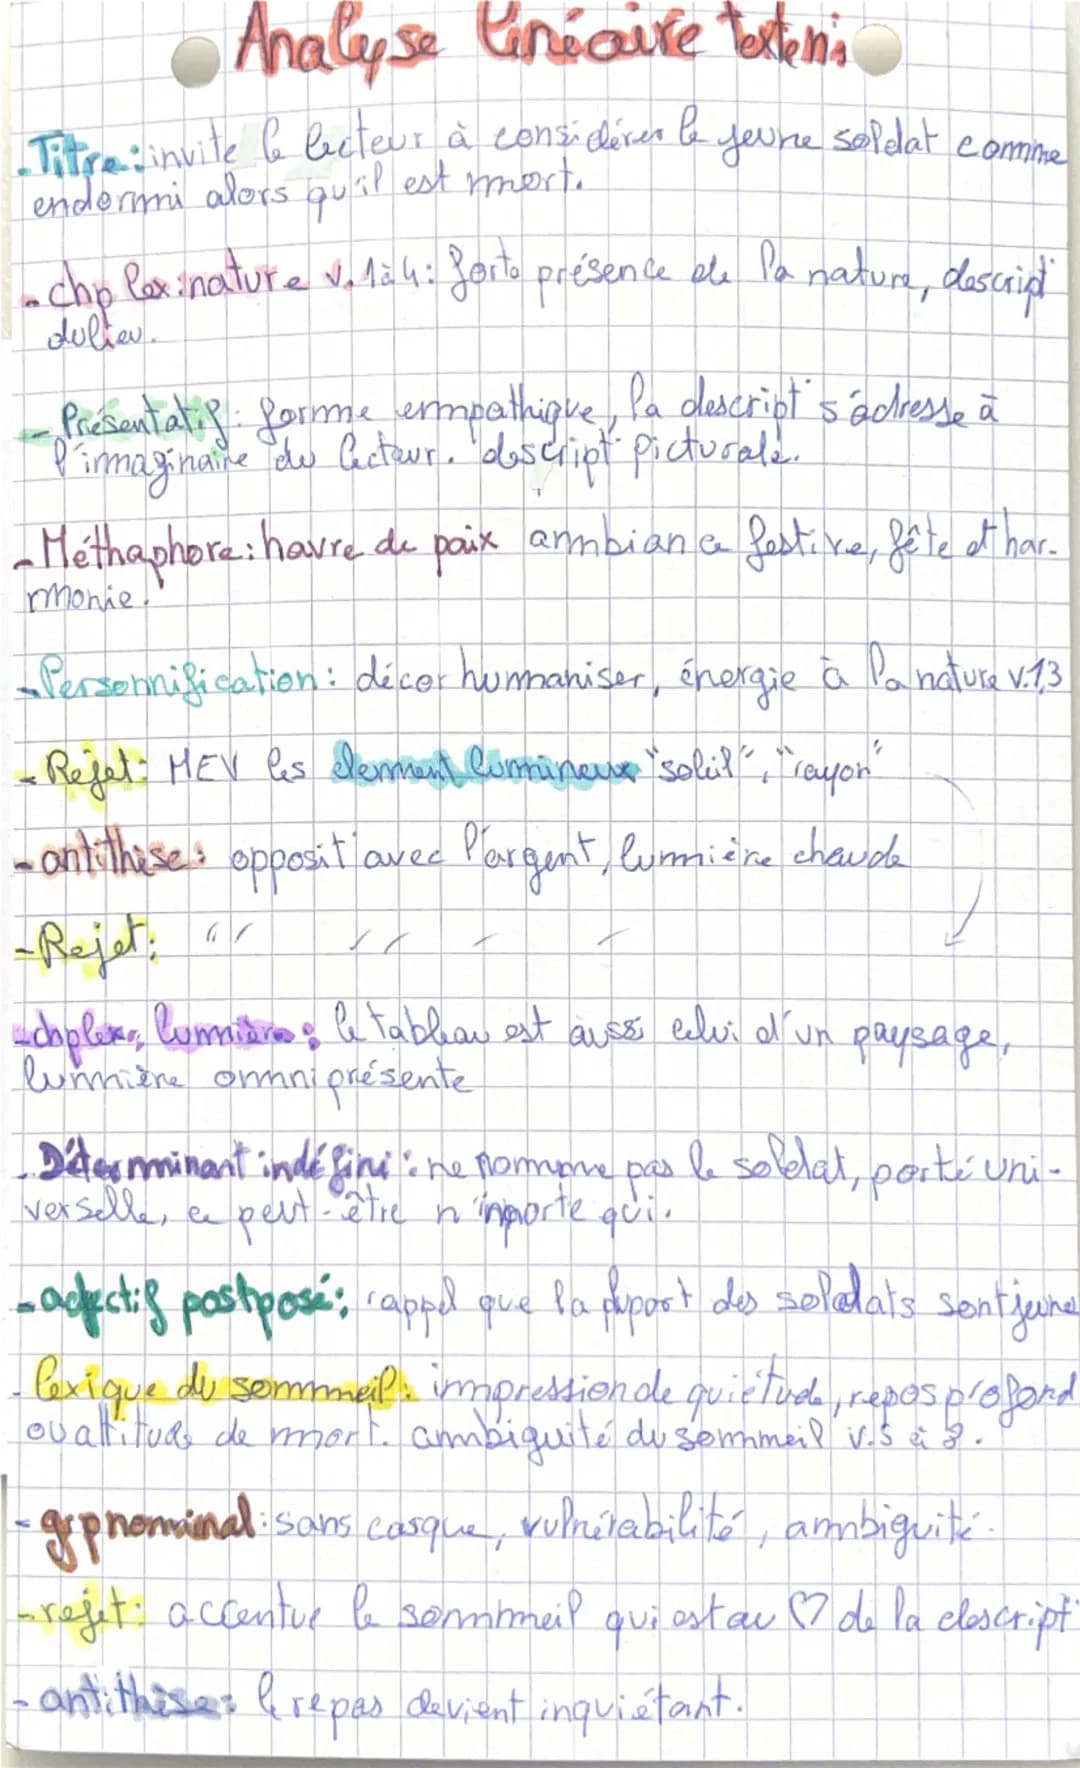 Analyse linéaire texte n°5
- Titre : invite le lecteur à considérer le jeune soldat comme
endormi alors qu'il est mort.
- chp lex : nature v. 1 à 4 : forte présence de la nature, descript°
du lieu.
- Présentatif : forme empathique, la descript° s'adresse à
l'imaginaire du lecteur. descript° picturale.
- Méthaphore : havre de paix ambiance festive, fête et har-
monie.
- Personnification : décor humaniser, énergie à la nature v.1,3
- Rejet : MEV les element lumineux "soleil", "rayon"
- antithèse : opposit° avec l'argent, lumière chaude
- Rejet : " " " " " "
- chp lex, lumière : le tableau est aussi celui d'un paysage,
lumière omniprésente
- Déterminant indéfini : ne nomme pas le soldat, porté uni-
verselle, ce peut-être n'inporte qui.
- adjectif postposé : rappel que la plupart des soldats sont jeune
- lexique du sommeil : impression de quiétude, repos profond
ou attitude de mort. ambiguité du sommeil v.5 à 8.
- grp nominal : sans casque, vulnérabilité, ambiguité.
- rejet : accentue le sommeil qui est au ♡ de la descript°
- antithèse : le repas devient inquiétant.